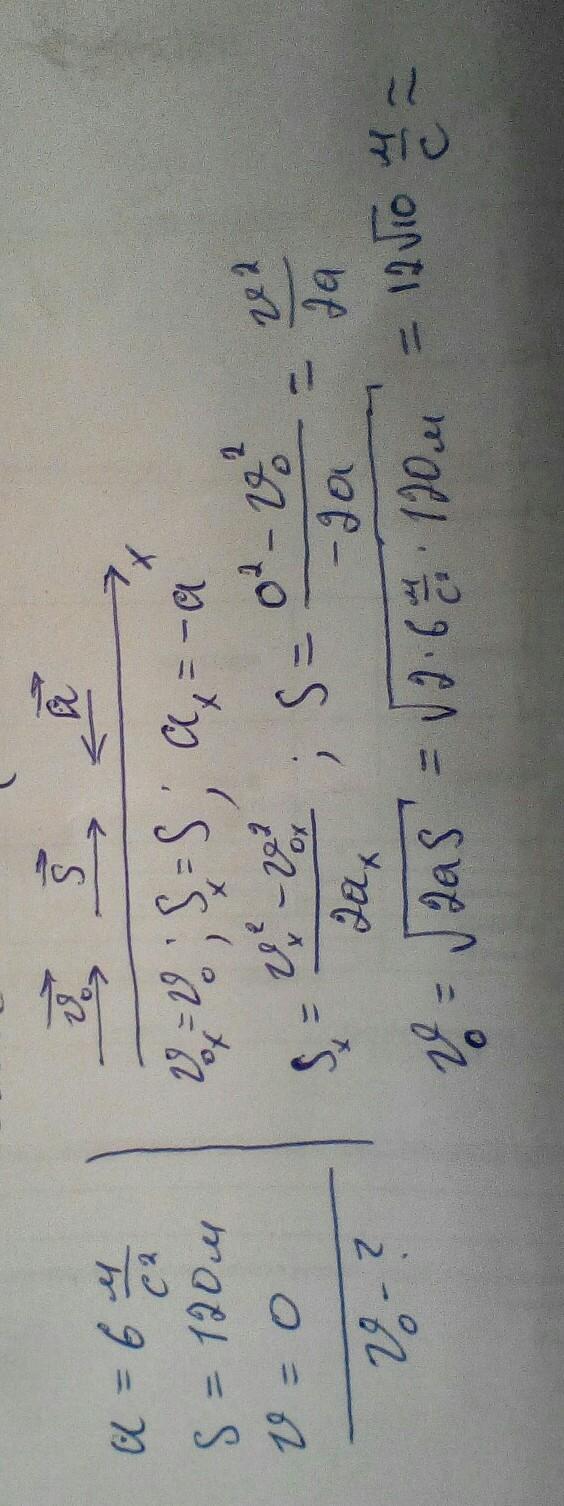 a = 6 м/с²
S = 120 м
υ = 0
υ₀ - ?
υ⃗₀ S⃗ a⃗
x
υ₀ₓ = υ₀; Sₓ = S; aₓ = -a
Sₓ = (υₓ² - υ₀ₓ²)/(2aₓ); S = (0² - υ₀²)/(-2a) = υ²/(2a)
υ₀ = √(2aS) = √(2·6 м/с² · 120 м) = 12√10 м/с ≈